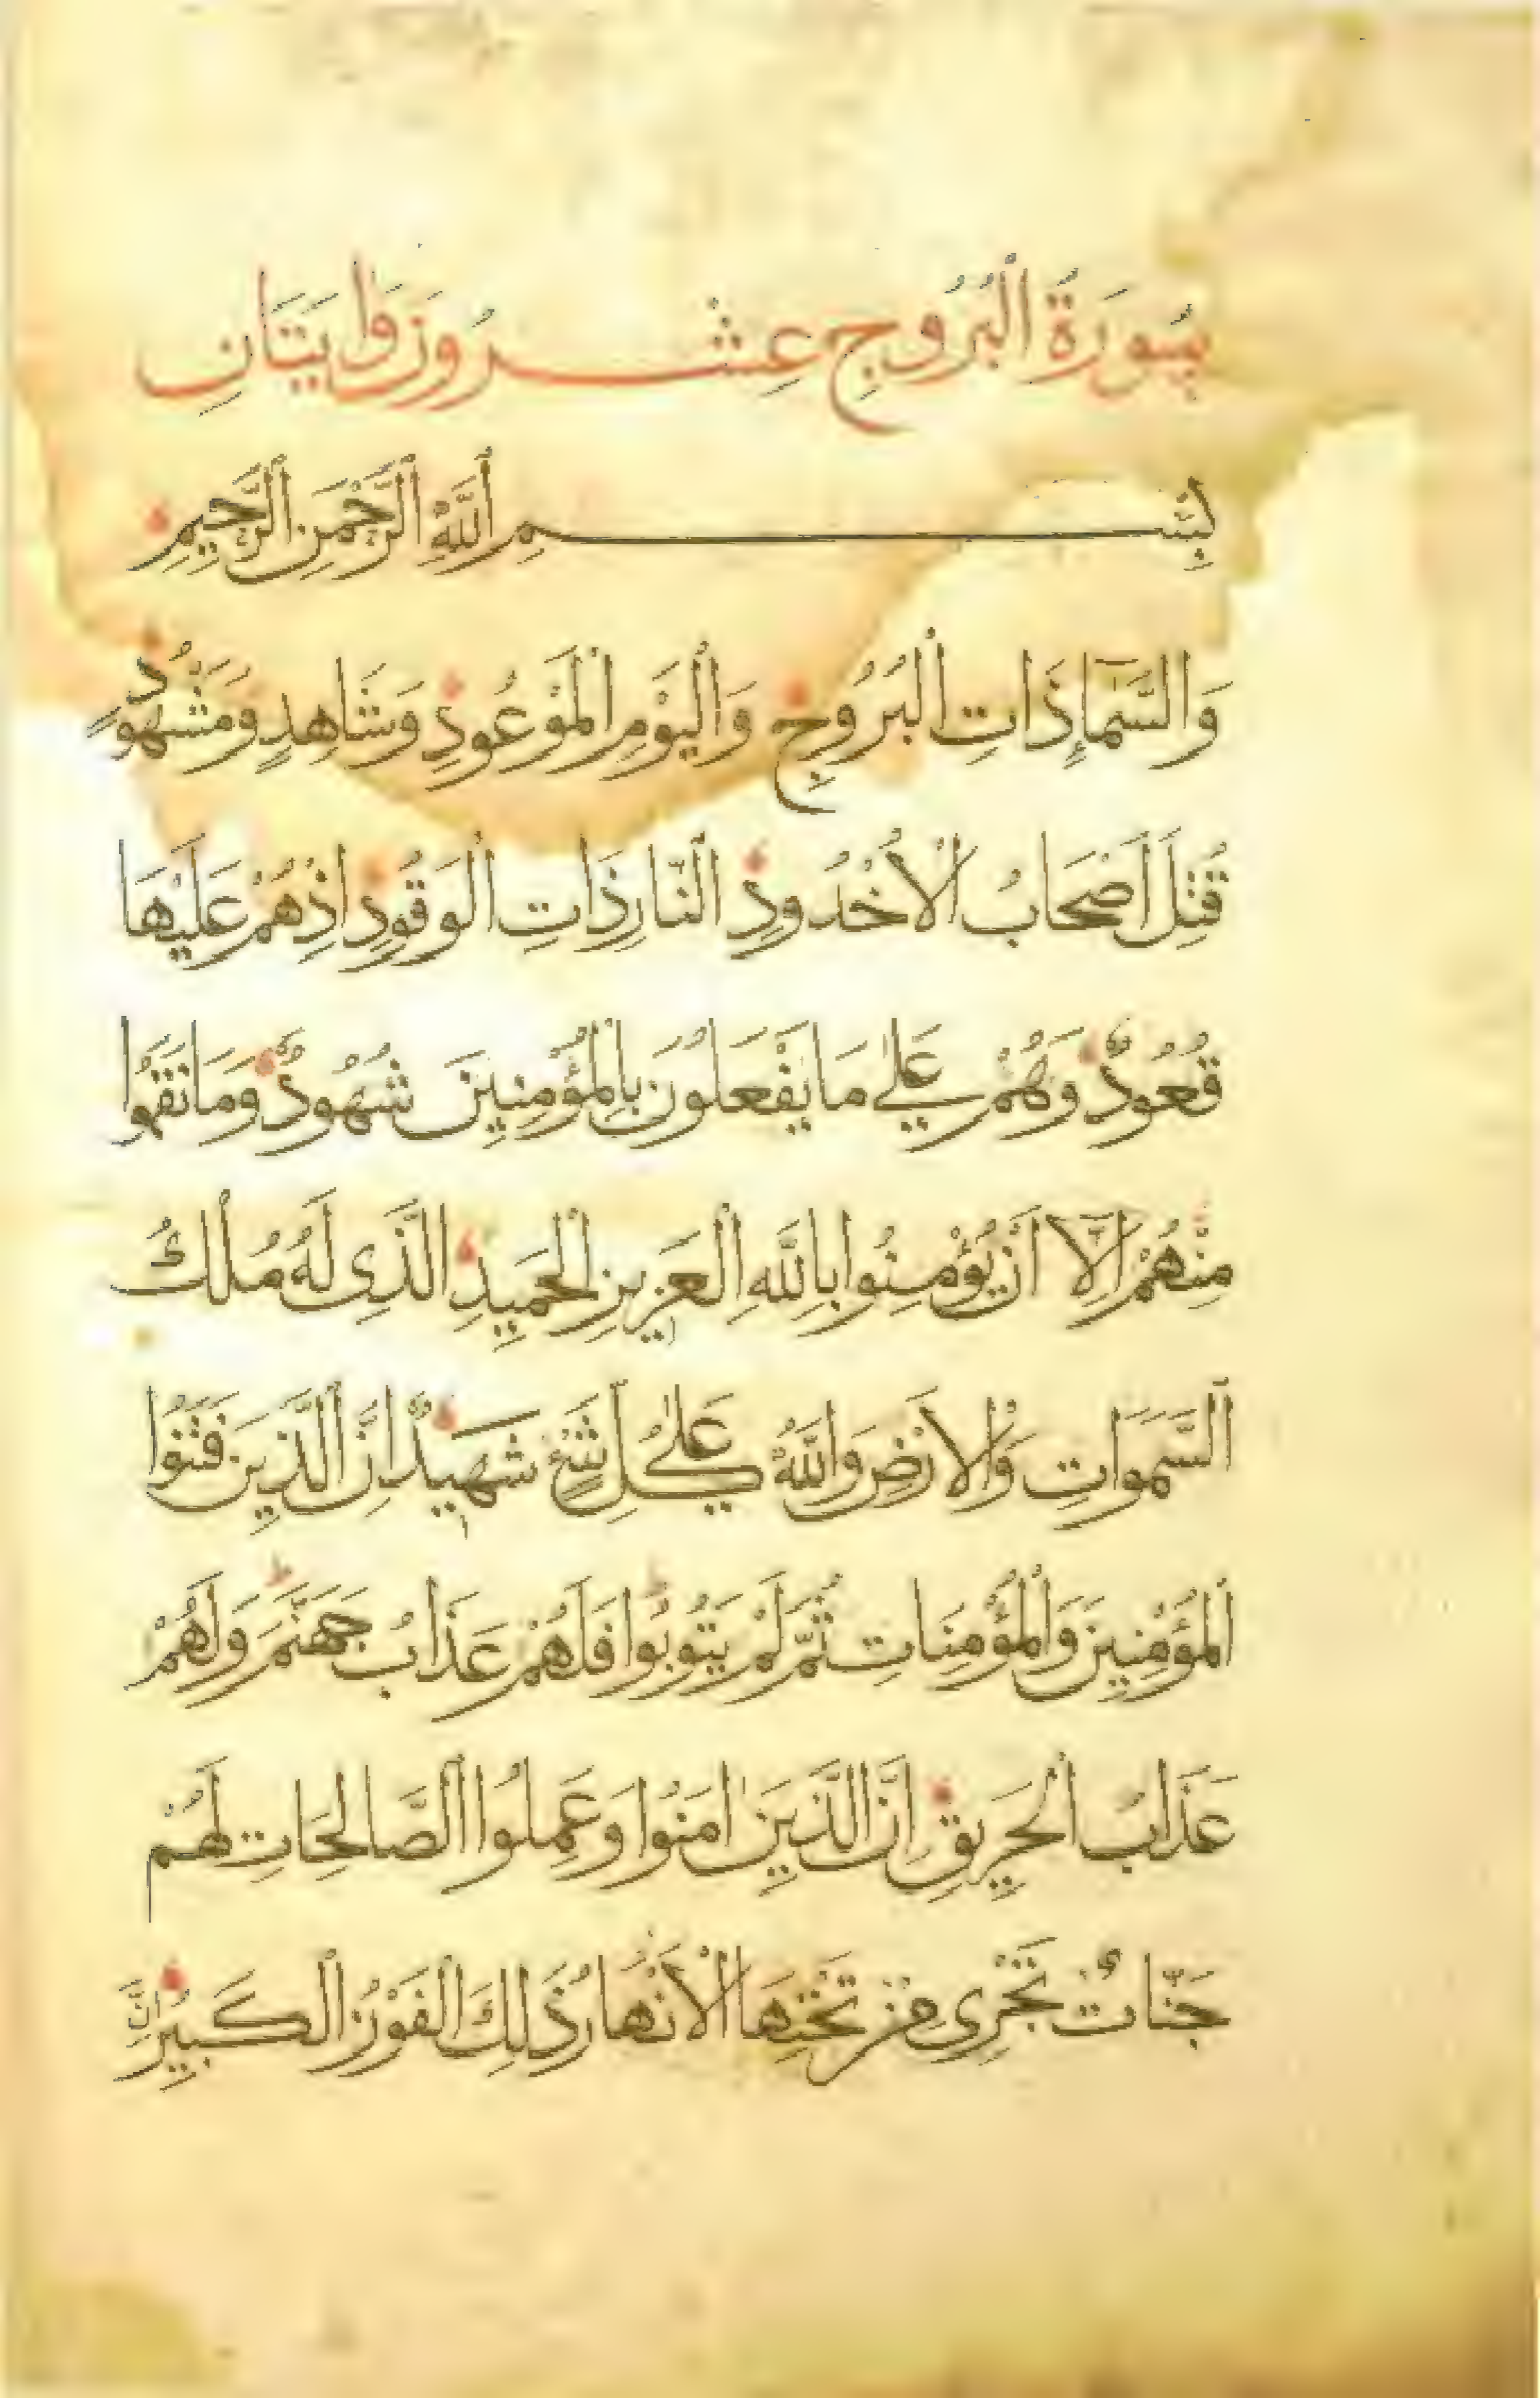 سُورَةُ الْبُرُوجِ عِشْرُونَ وَايَتَانِ
بِسْمِ اللَّهِ الرَّحْمَنِ الرَّحِيمِ
وَالسَّمَآءِ ذَاتِ الْبُرُوجِ وَالْيَوْمِ الْمَوْعُودِ وَشَاهِدٍ وَمَشْهُودٍ
قُتِلَ أَصْحَابُ الْأُخْدُودِ النَّارِ ذَاتِ الْوَقُودِ اِذْ هُمْ عَلَيْهَا
قُعُودٌ وَهُمْ عَلٰى مَا يَفْعَلُونَ بِالْمُؤْمِنِينَ شُهُودٌ وَمَا نَقَمُوا
مِنْهُمْ اِلَّا أَنْ يُؤْمِنُوا بِاللَّهِ الْعَزِيزِ الْحَمِيدِ الَّذِى لَهُ مُلْكُ
السَّمَوَاتِ وَالْاَرْضِ وَاللَّهُ عَلٰى كُلِّ شَيْءٍ شَهِيدٌ اِنَّ الَّذِينَ فَتَنُوا
الْمُؤْمِنِينَ وَالْمُؤْمِنَاتِ ثُمَّ لَمْ يَتُوبُوا فَلَهُمْ عَذَابُ جَهَنَّمَ وَلَهُمْ
عَذَابُ الْحَرِيقِ اِنَّ الَّذِينَ اٰمَنُوا وَعَمِلُوا الصَّالِحَاتِ لَهُمْ
جَنَّاتٌ تَجْرِى مِنْ تَحْتِهَا الْأَنْهَارُ ذَلِكَ الْفَوْزُ الْكَبِيرُ اِنَّ